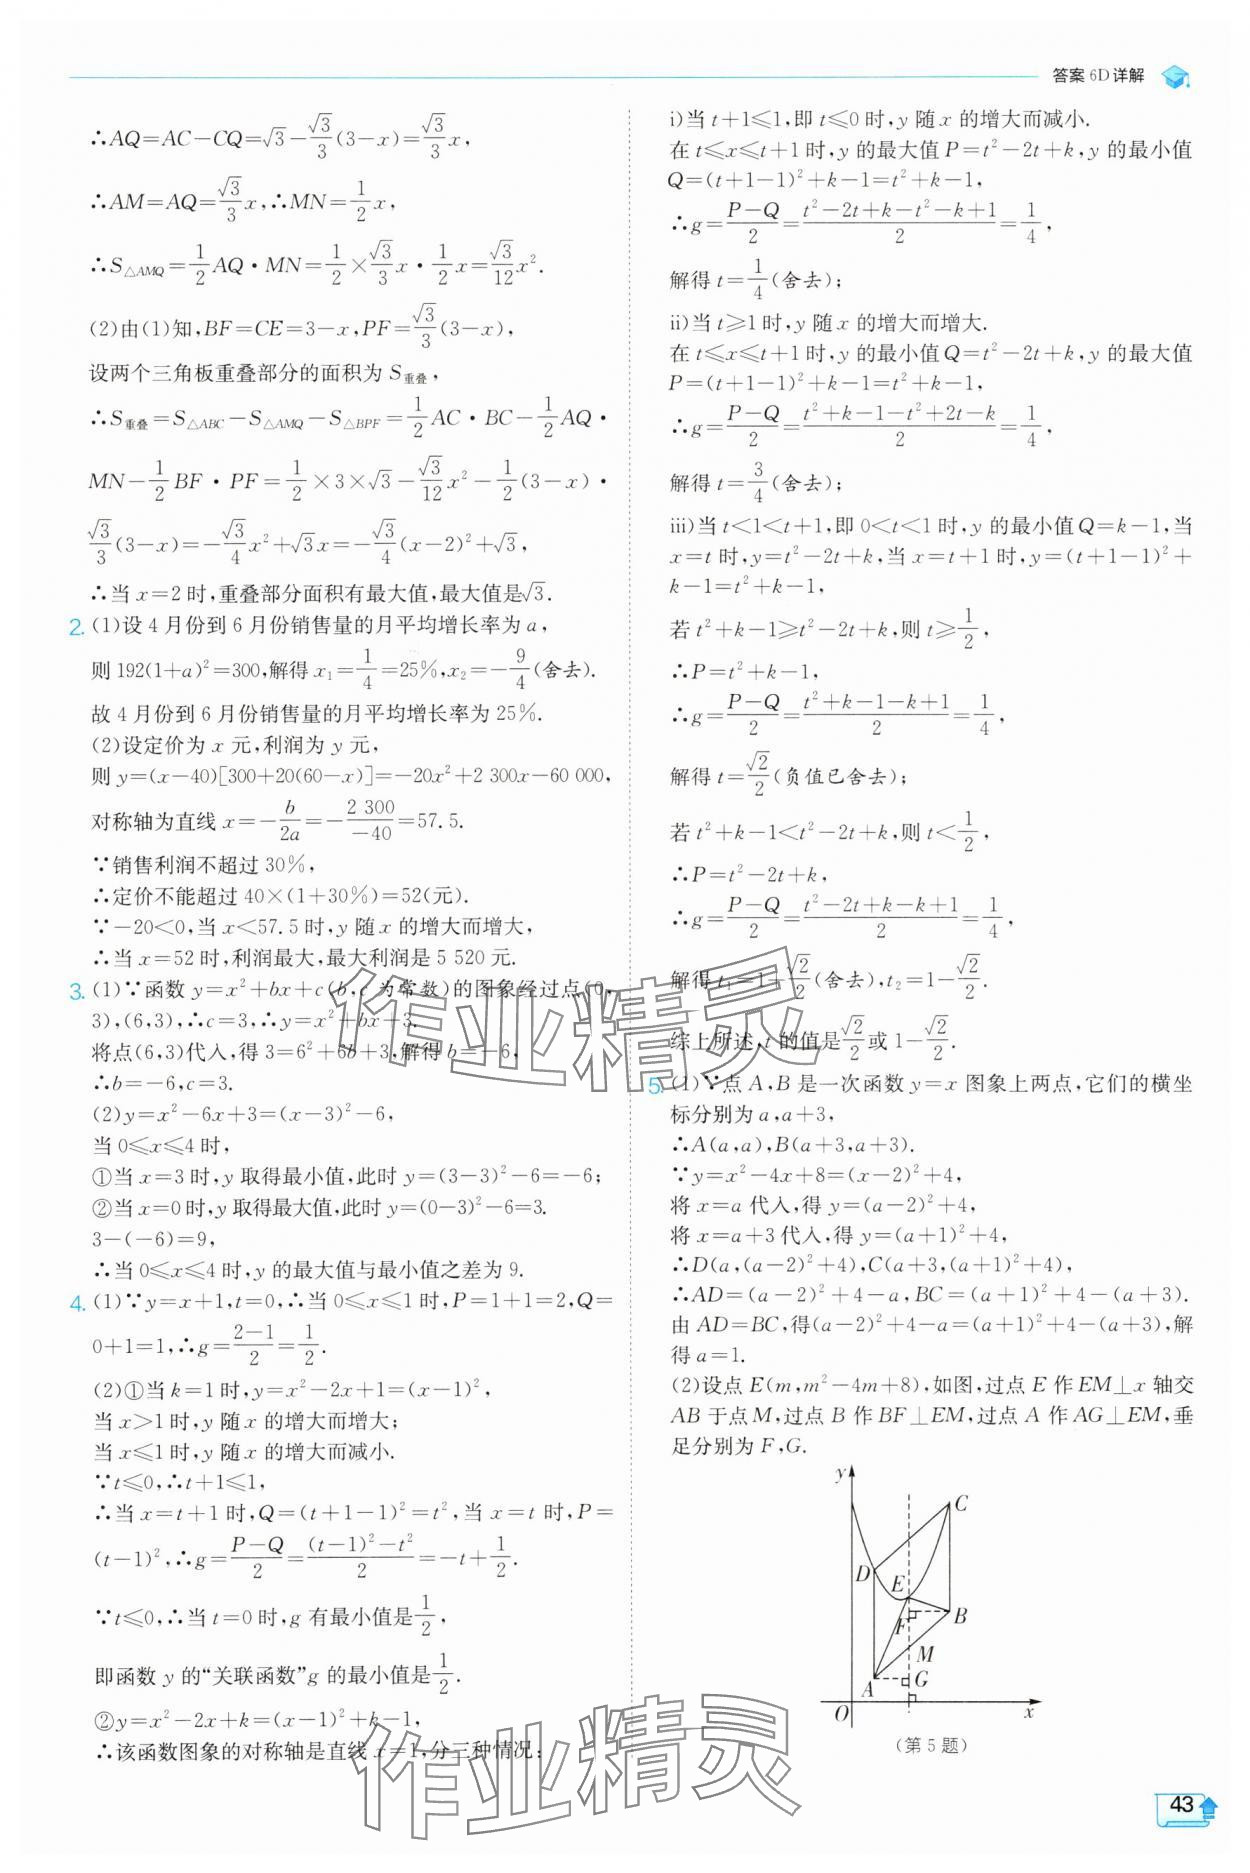 答案 6D 详解
∴AQ=AC−CQ=√3−(√3/3)(3−x)=(√3/3)x,
∴AM=AQ=(√3/3)x,∴MN=(1/2)x,
∴S△AMQ=(1/2)AQ·MN=(1/2)×(√3/3)x·(1/2)x=(√3/12)x².
(2)由(1)知,BF=CE=3−x,PF=(√3/3)(3−x),
设两个三角板重叠部分的面积为 S重叠,
∴S重叠=S△ABC−S△AMQ−S△BPF=(1/2)AC·BC−(1/2)AQ·
MN−(1/2)BF·PF=(1/2)×3×√3−(√3/12)x²−(1/2)(3−x)·
(√3/3)(3−x)=−(√3/4)x²+√3x=−(√3/4)(x−2)²+√3,
∴当 x=2 时,重叠部分面积有最大值,最大值是√3.
2. (1)设 4 月份到 6 月份销售量的月平均增长率为 a,
则 192(1+a)²=300,解得 x₁=1/4=25%,x₂=−9/4(舍去).
故 4 月份到 6 月份销售量的月平均增长率为 25%.
(2)设定价为 x 元,利润为 y 元,
则 y=(x−40)[300+20(60−x)]=−20x²+2 300x−60 000,
对称轴为直线 x=−b/2a=−2 300/−40=57.5.
∵销售利润不超过 30%,
∴定价不能超过 40×(1+30%)=52(元).
∵−20<0,当 x<57.5 时,y 随 x 的增大而增大,
∴当 x=52 时,利润最大,最大利润是 5 520 元.
3. (1)∵函数 y=x²+bx+c(b,c 为常数)的图象经过点(0,
3),(6,3),∴c=3,∴y=x²+bx+3.
将点(6,3)代入,得 3=6²+6b+3,解得 b=−6,
∴b=−6,c=3.
(2)y=x²−6x+3=(x−3)²−6,
当 0≤x≤4 时,
①当 x=3 时,y 取得最小值,此时 y=(3−3)²−6=−6;
②当 x=0 时,y 取得最大值,此时 y=(0−3)²−6=3.
3−(−6)=9,
∴当 0≤x≤4 时,y 的最大值与最小值之差为 9.
4. (1)∵y=x+1,t=0,∴当 0≤x≤1 时,P=1+1=2,Q=
0+1=1,∴g=(2−1)/2=1/2.
(2)①当 k=1 时,y=x²−2x+1=(x−1)²,
当 x>1 时,y 随 x 的增大而增大;
当 x≤1 时,y 随 x 的增大而减小.
∵t≤0,∴t+1≤1,
∴当 x=t+1 时,Q=(t+1−1)²=t²,当 x=t 时,P=
(t−1)²,∴g=(P−Q)/2=((t−1)²−t²)/2=−t+1/2.
∵t≤0,∴当 t=0 时,g 有最小值是1/2,
即函数 y 的“关联函数”g 的最小值是1/2.
②y=x²−2x+k=(x−1)²+k−1,
∴该函数图象的对称轴是直线 x=1,分三种情况:
i)当 t+1≤1,即 t≤0 时,y 随 x 的增大而减小.
在 t≤x≤t+1 时,y 的最大值 P=t²−2t+k,y 的最小值
Q=(t+1−1)²+k−1=t²+k−1,
∴g=(P−Q)/2=(t²−2t+k−t²−k+1)/2=1/4,
解得 t=1/4(舍去);
ii)当 t≥1 时,y 随 x 的增大而增大.
在 t≤x≤t+1 时,y 的最小值 Q=t²−2t+k,y 的最大值
P=(t+1−1)²+k−1=t²+k−1,
∴g=(P−Q)/2=(t²+k−1−t²+2t−k)/2=1/4,
解得 t=3/4(舍去);
iii)当 t<1<t+1,即 0<t<1 时,y 的最小值 Q=k−1,当
x=t 时,y=t²−2t+k,当 x=t+1 时,y=(t+1−1)²+
k−1=t²+k−1,
若 t²+k−1≥t²−2t+k,则 t≥1/2,
∴P=t²+k−1,
∴g=(P−Q)/2=(t²+k−1−k+1)/2=1/4,
解得 t=√2/2(负值已舍去);
若 t²+k−1<t²−2t+k,则 t<1/2,
∴P=t²−2t+k,
∴g=(P−Q)/2=(t²−2t+k−k+1)/2=1/4,
解得 t₁=1+√2/2(舍去),t₂=1−√2/2.
综上所述,t 的值是√2/2或 1−√2/2.
5. (1)∵点 A,B 是一次函数 y=x 图象上两点,它们的横坐
标分别为 a,a+3,
∴A(a,a),B(a+3,a+3).
∵y=x²−4x+8=(x−2)²+4,
将 x=a 代入,得 y=(a−2)²+4,
将 x=a+3 代入,得 y=(a+1)²+4,
∴D(a,(a−2)²+4),C(a+3,(a+1)²+4),
∴AD=(a−2)²+4−a,BC=(a+1)²+4−(a+3).
由 AD=BC,得(a−2)²+4−a=(a+1)²+4−(a+3),解
得 a=1.
(2)设点 E(m,m²−4m+8),如图,过点 E 作 EM⊥x 轴交
AB 于点 M,过点 B 作 BF⊥EM,过点 A 作 AG⊥EM,垂
足分别为 F,G.
y
C
D
E
F
B
M
A
G
O
x
(第 5 题)
作业精灵
作业精灵
43